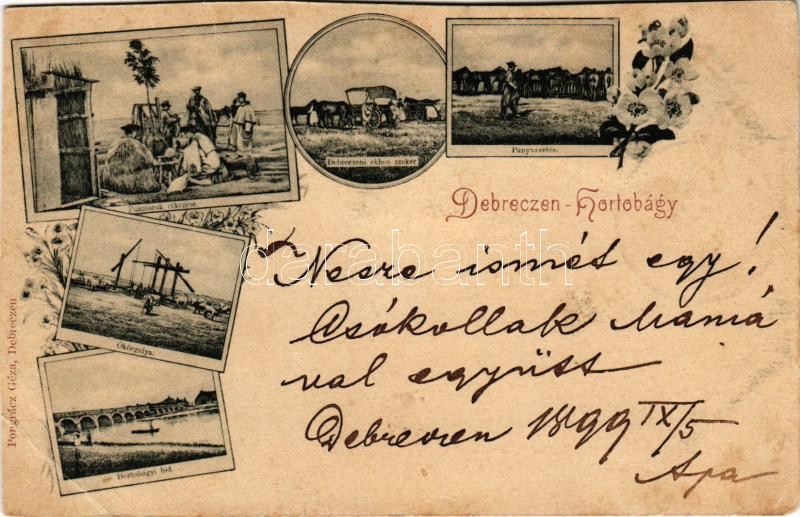 Pásztorok étkezése.
Debreczeni ekhós szekér
Pányvavetés.
Debreczen-Hortobágy
Nesze ismét egy!
Csókollak Mamá
val együtt
Debreczen 1899 IX/5
Apa
Ökörgulya.
Hortobágyi híd.
Pongrácz Géza, Debreczen
darabanth